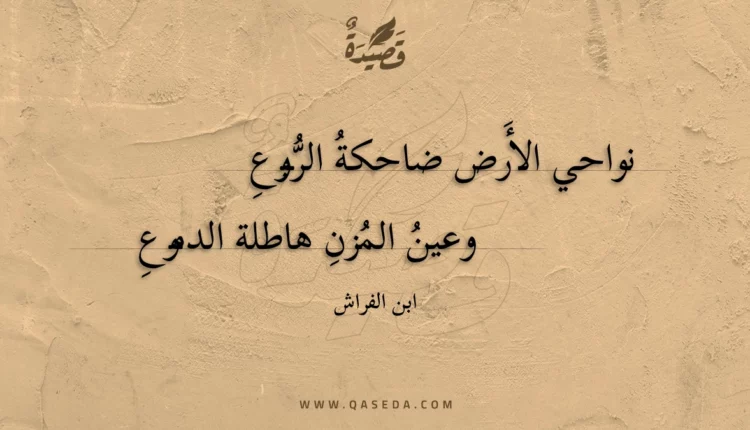 قَصِيْدَةٌ
نواحي الأَرض ضاحكةُ الرُّبوعِ
وعينُ المُزنِ هاطلة الدموعِ
ابن الفراش
WWW.QASEDA.COM